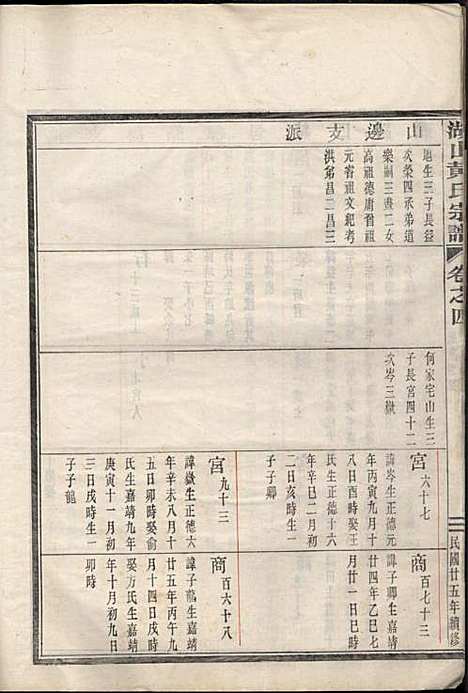 湖山黃氏宗譜
卷之四
民國廿五年續修
山邊支派
生三子長益
次榮四承弟道
樂嗣三晝二女
高祖德庸曾祖
元睿祖文紀考
洪弟昌二昌三
何家宅山生三
子長宮四十二
次岑三嶽
宮六十七
諱岑生正德元
年丙寅九月十
八日酉時娶王
氏生正德十六
年辛巳二月初
二日亥時生一
子子卿
宮九十三
諱嶽生正德六
年辛未八月十
五日卯時娶俞
氏生嘉靖九年
庚寅十一月初
三日戌時生一
子子龍
商百七十三
諱子卿生嘉靖
廿四年乙巳七
月廿一日巳時
商百六十八
諱子龍生嘉靖
廿五年丙午九
月十四日戌時
娶方氏生嘉靖
年十月初九日
卯時